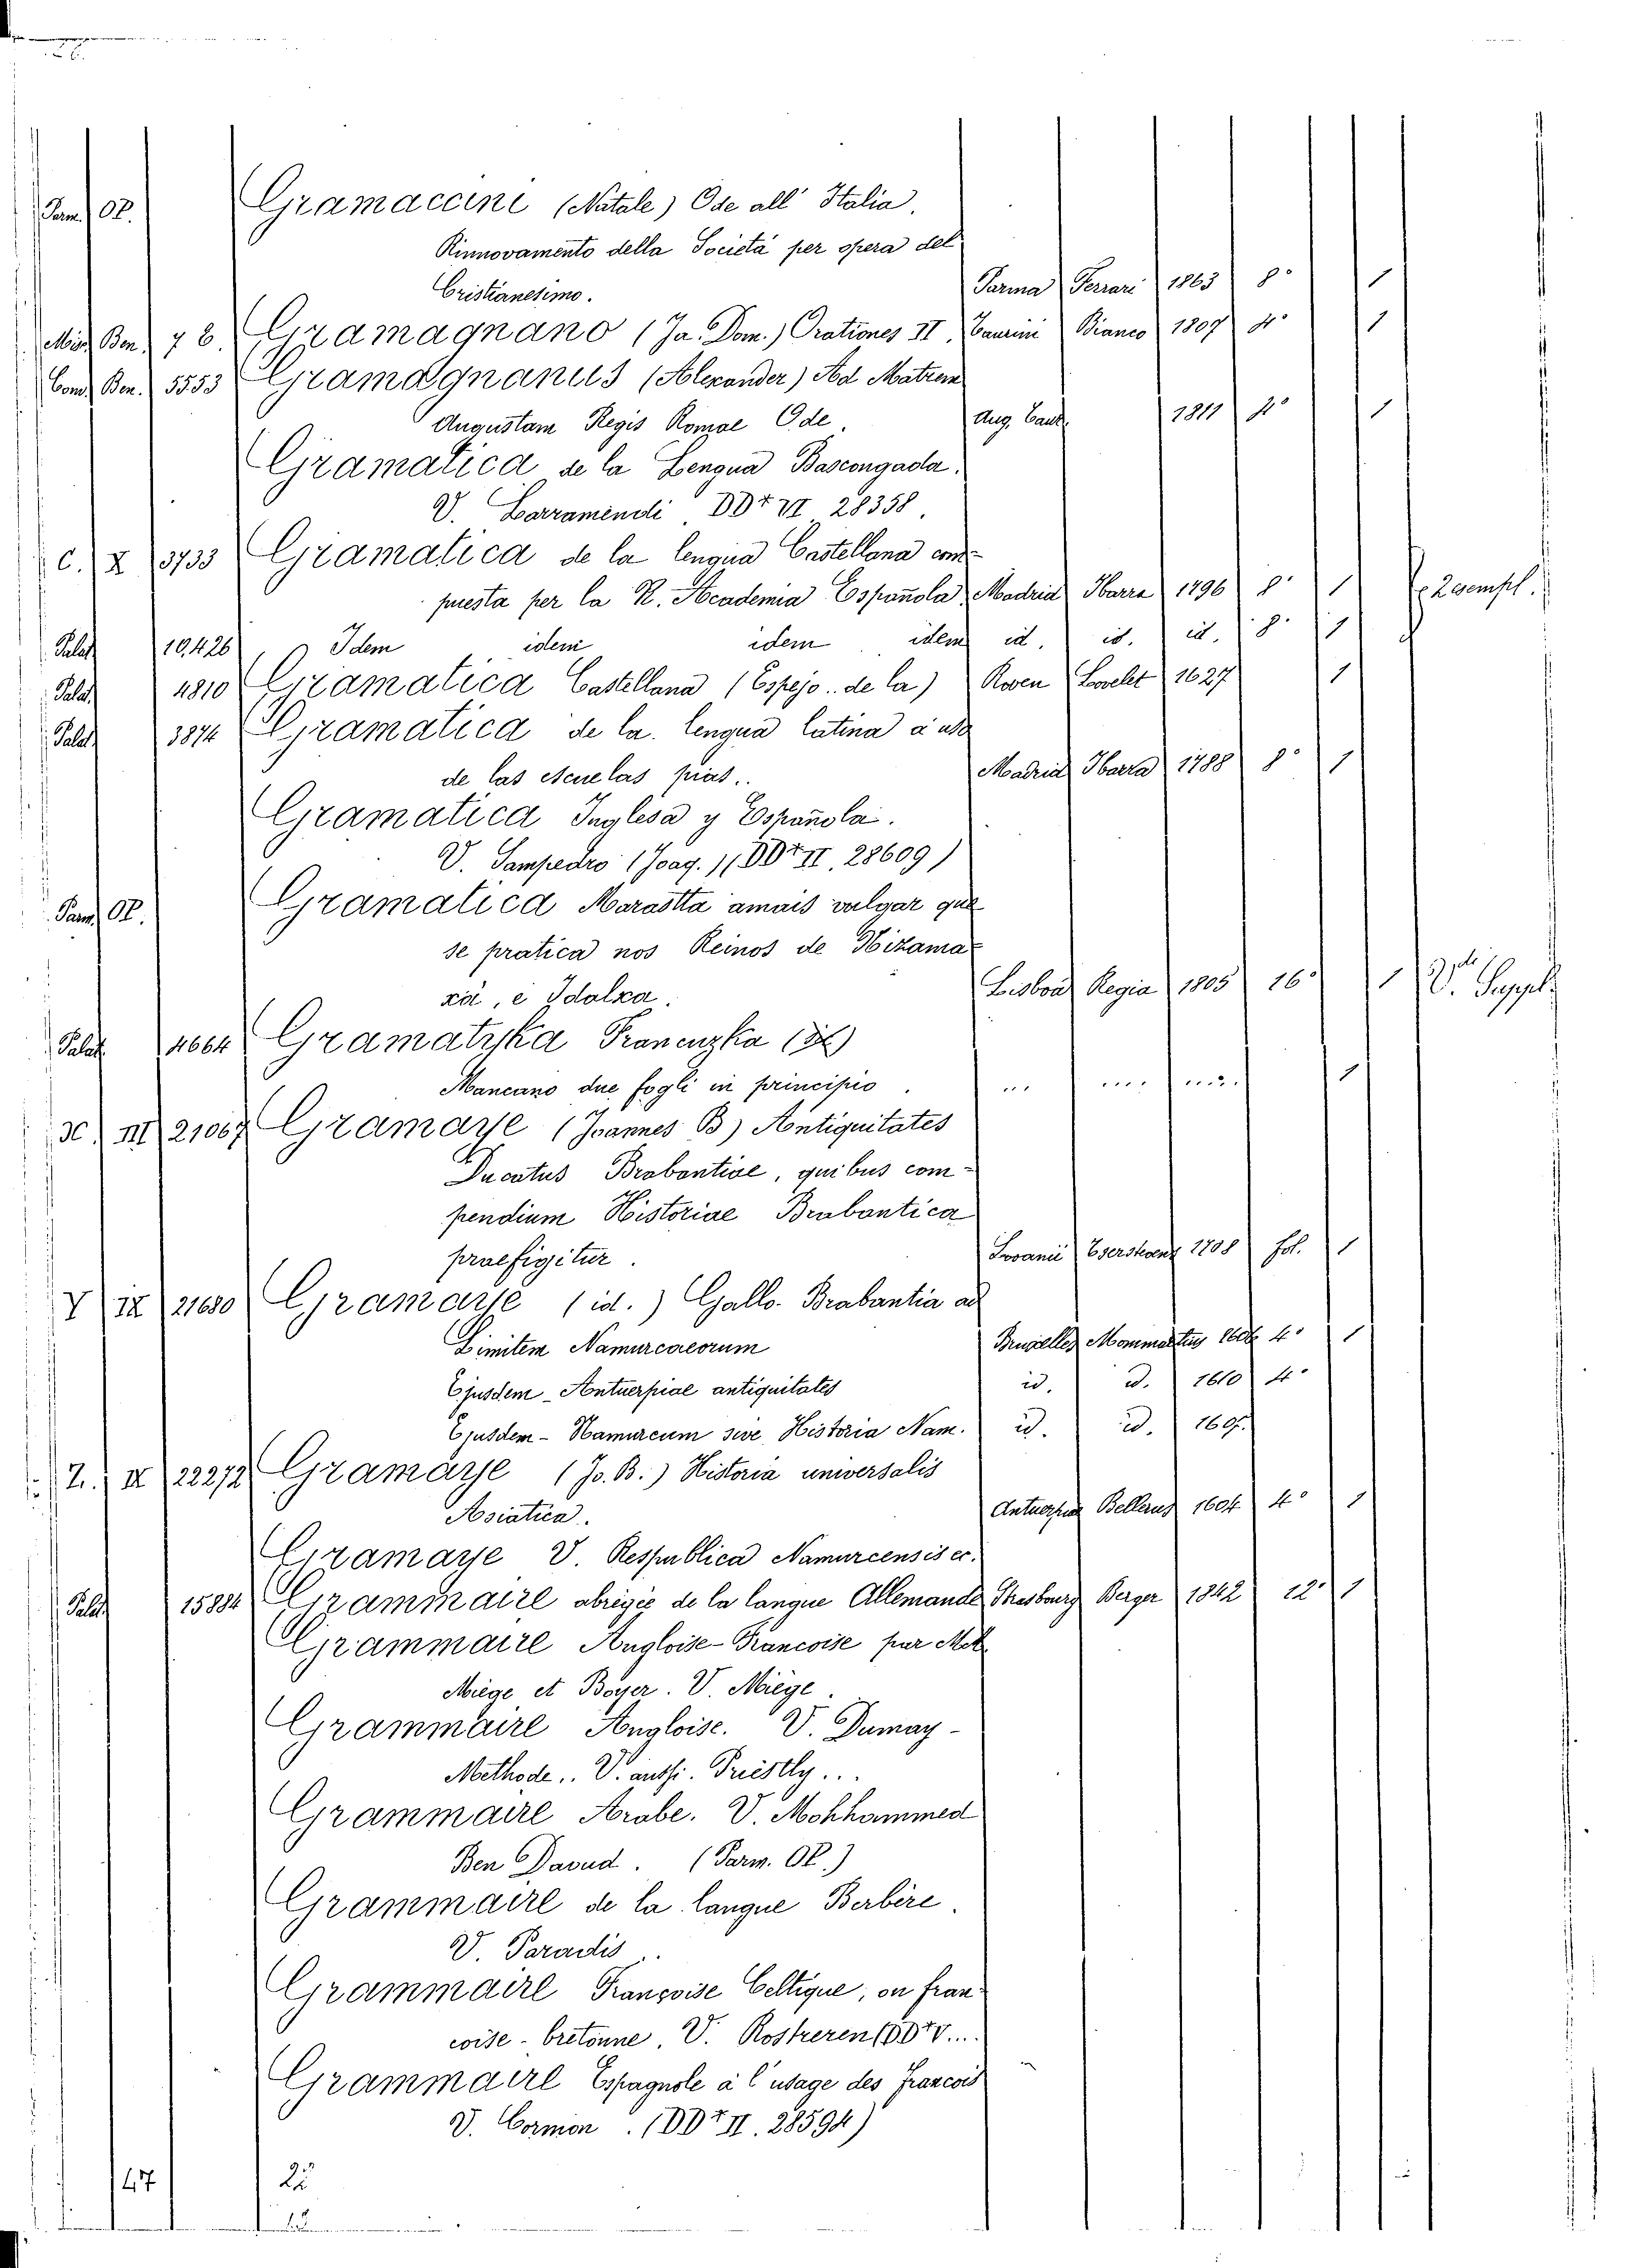 Parm. Of. Gramaccini (Natale) Ode all' Italia.
Rinnovamento della Società per opera del
Cristianesimo. Parma Ferrari 1863 8° 1
Misc. Ben. 78. Gramagnano (Ja. Dom.) Orationes II. Taurini Bianco 1807 4° 1
Ben. 5553 Gramagnanus (Alexander) Ad Matrem
Augustam Regis Romae Ode. Aug. Taur. 1811 4° 1
Gramatica de la Lengua Bascongada.
V. Larramendi DD+ VI 28358.
C. X 3733 Gramatica de la lengua Castellana com-
puesta per la R. Academia Española Madrid Ibarra 1796 8° 1
Palat. 10,426 Idem idem idem idem id. id. id. 8° 1
Palat. 4810 Gramatica Castellana (Espejo.. de la) Roven Lovelet 1627 1
Palat. 3874 Gramatica de la lengua latina a uso
de las escuelas pias.. Madrid Ibarra 1788 8° 1
Gramatica Inglesa y Española.
V. Sampedro (Joaq.) (DD+ II. 28609)
Parm. Of. Gramatica Marastta amais vulgar que
se pratica nos Reinos de Nizama-
xà, e Idalxa. Lisboa Regia 1805 16° 1 V. Suppl.
Palat. 4664 Gramatyka Francuzka
Mancano due fogli in principio. ... .... .... 1
III 21067 Gramaye (Joannes B) Antiquitates
Ducatus Brabantiae, quibus com-
pendium Historiae Brabantica
praefigitur. Lovanii 1708 fol. 1
Y IX 21680 Gramaye (id.) Gallo-Brabantia ad
Limitem Namurcaeorum Bruxelles Mommartius 1606 4° 1
Ejusdem - Antuerpiae antiquitates id. id. 1610 4°
Ejusdem - Namurcum sive Historia Nam. id. id. 1607.
Z. IX 22272 Gramaye (Jo. B.) Historia universalis
Asiatica. Antuerpiae Bellerus 1604 4° 1
Gramaye V. Respublica Namurcensis ec.
Palat. 15884 Grammaire abrigée de la langue Allemande Strasbourg Berger 1842 12° 1
Grammaire Angloise-Francoise par
Miège et Boyer. V. Miège.
Grammaire Angloise. V. Dumay -
Methode.. V. aussi. Priestly...
Grammaire Arabe. V. Mohhammed
Ben Davud. (Parm. Of.)
Grammaire de la langue Berbère.
V. Paradis..
Grammaire Françoise Celtique, ou fran-
coise - bretonne. V. Rostrenen (DD+ V...
Grammaire Espagnole à l'usage des francois
V. Cormon. (DD+ II. 28594)
147 22